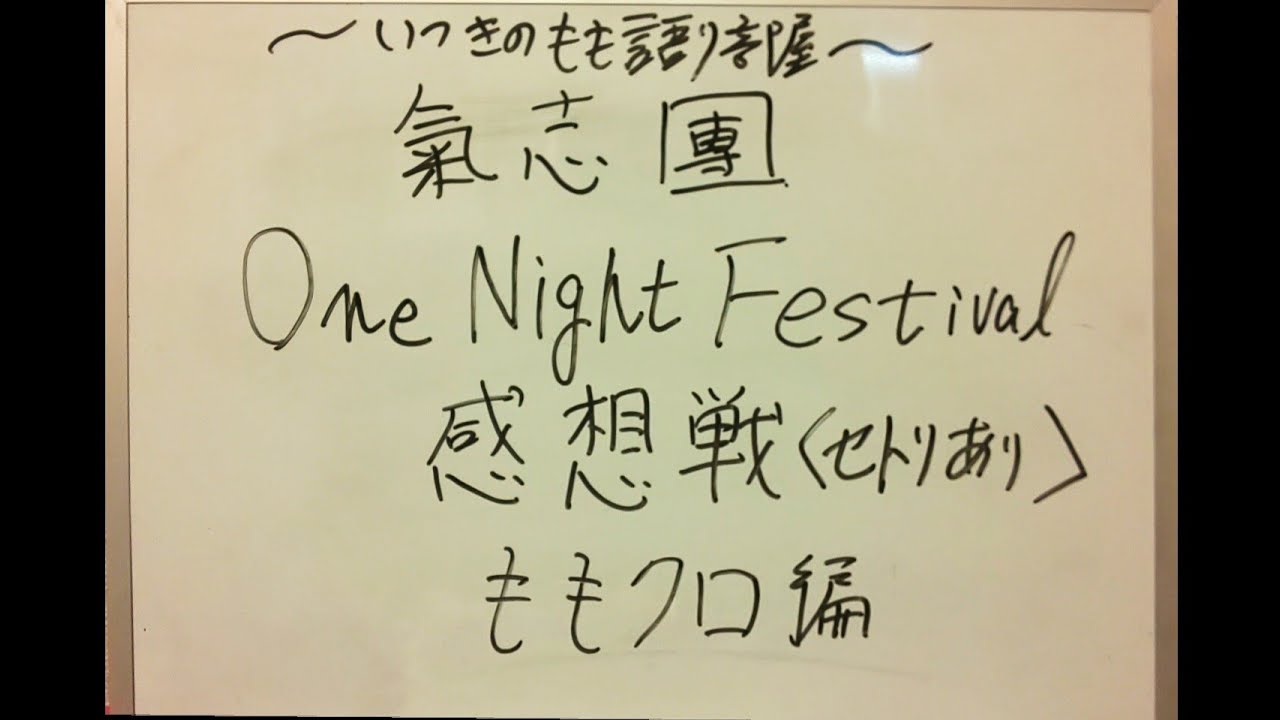 ～いつきのもも語り部屋～
氣志團
One Night Festival
感想戦〈セトリあり〉
ももクロ編